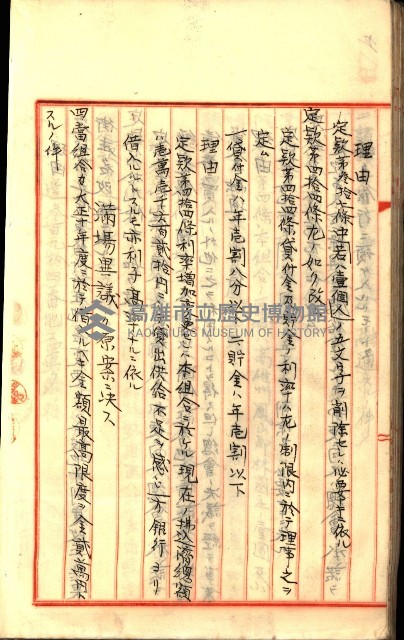 理由
定款第参拾七條中若ハ壹個人ノ五文字ヲ削除セル必要ニ依ル
定款第四拾四條左ノ如ク改ム
定款第四拾四條貸付金及貯金ノ利率ハ左ノ制限内ニ於テ理事之ヲ
定ム
一、貸付金ハ年壱割八分以下 一、貯金ハ年壱割以下
理由
定款第四拾四條利率増加
本組合ニ於ケル現在ノ拂込済總額
ハ壱萬壱千六百貳拾円ニシテ
供給不足ヲ感シ一方銀行ヨリノ
借入ルルトスルモ亦利子甚
ニ依ル
満場異議ナク原案ニ決ス
四、當組合カ大正十年度ニ於テ借入ルヘキ金額ノ最高限度ヲ金貳萬円ト
スルノ件
高雄市立歷史博物館